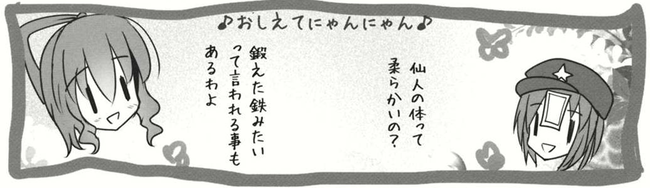 ♪おしえてにゃんにゃん♪
仙人の体って
柔らかいの？
鍛えた鉄みたい
って言われる事も
あるわよ